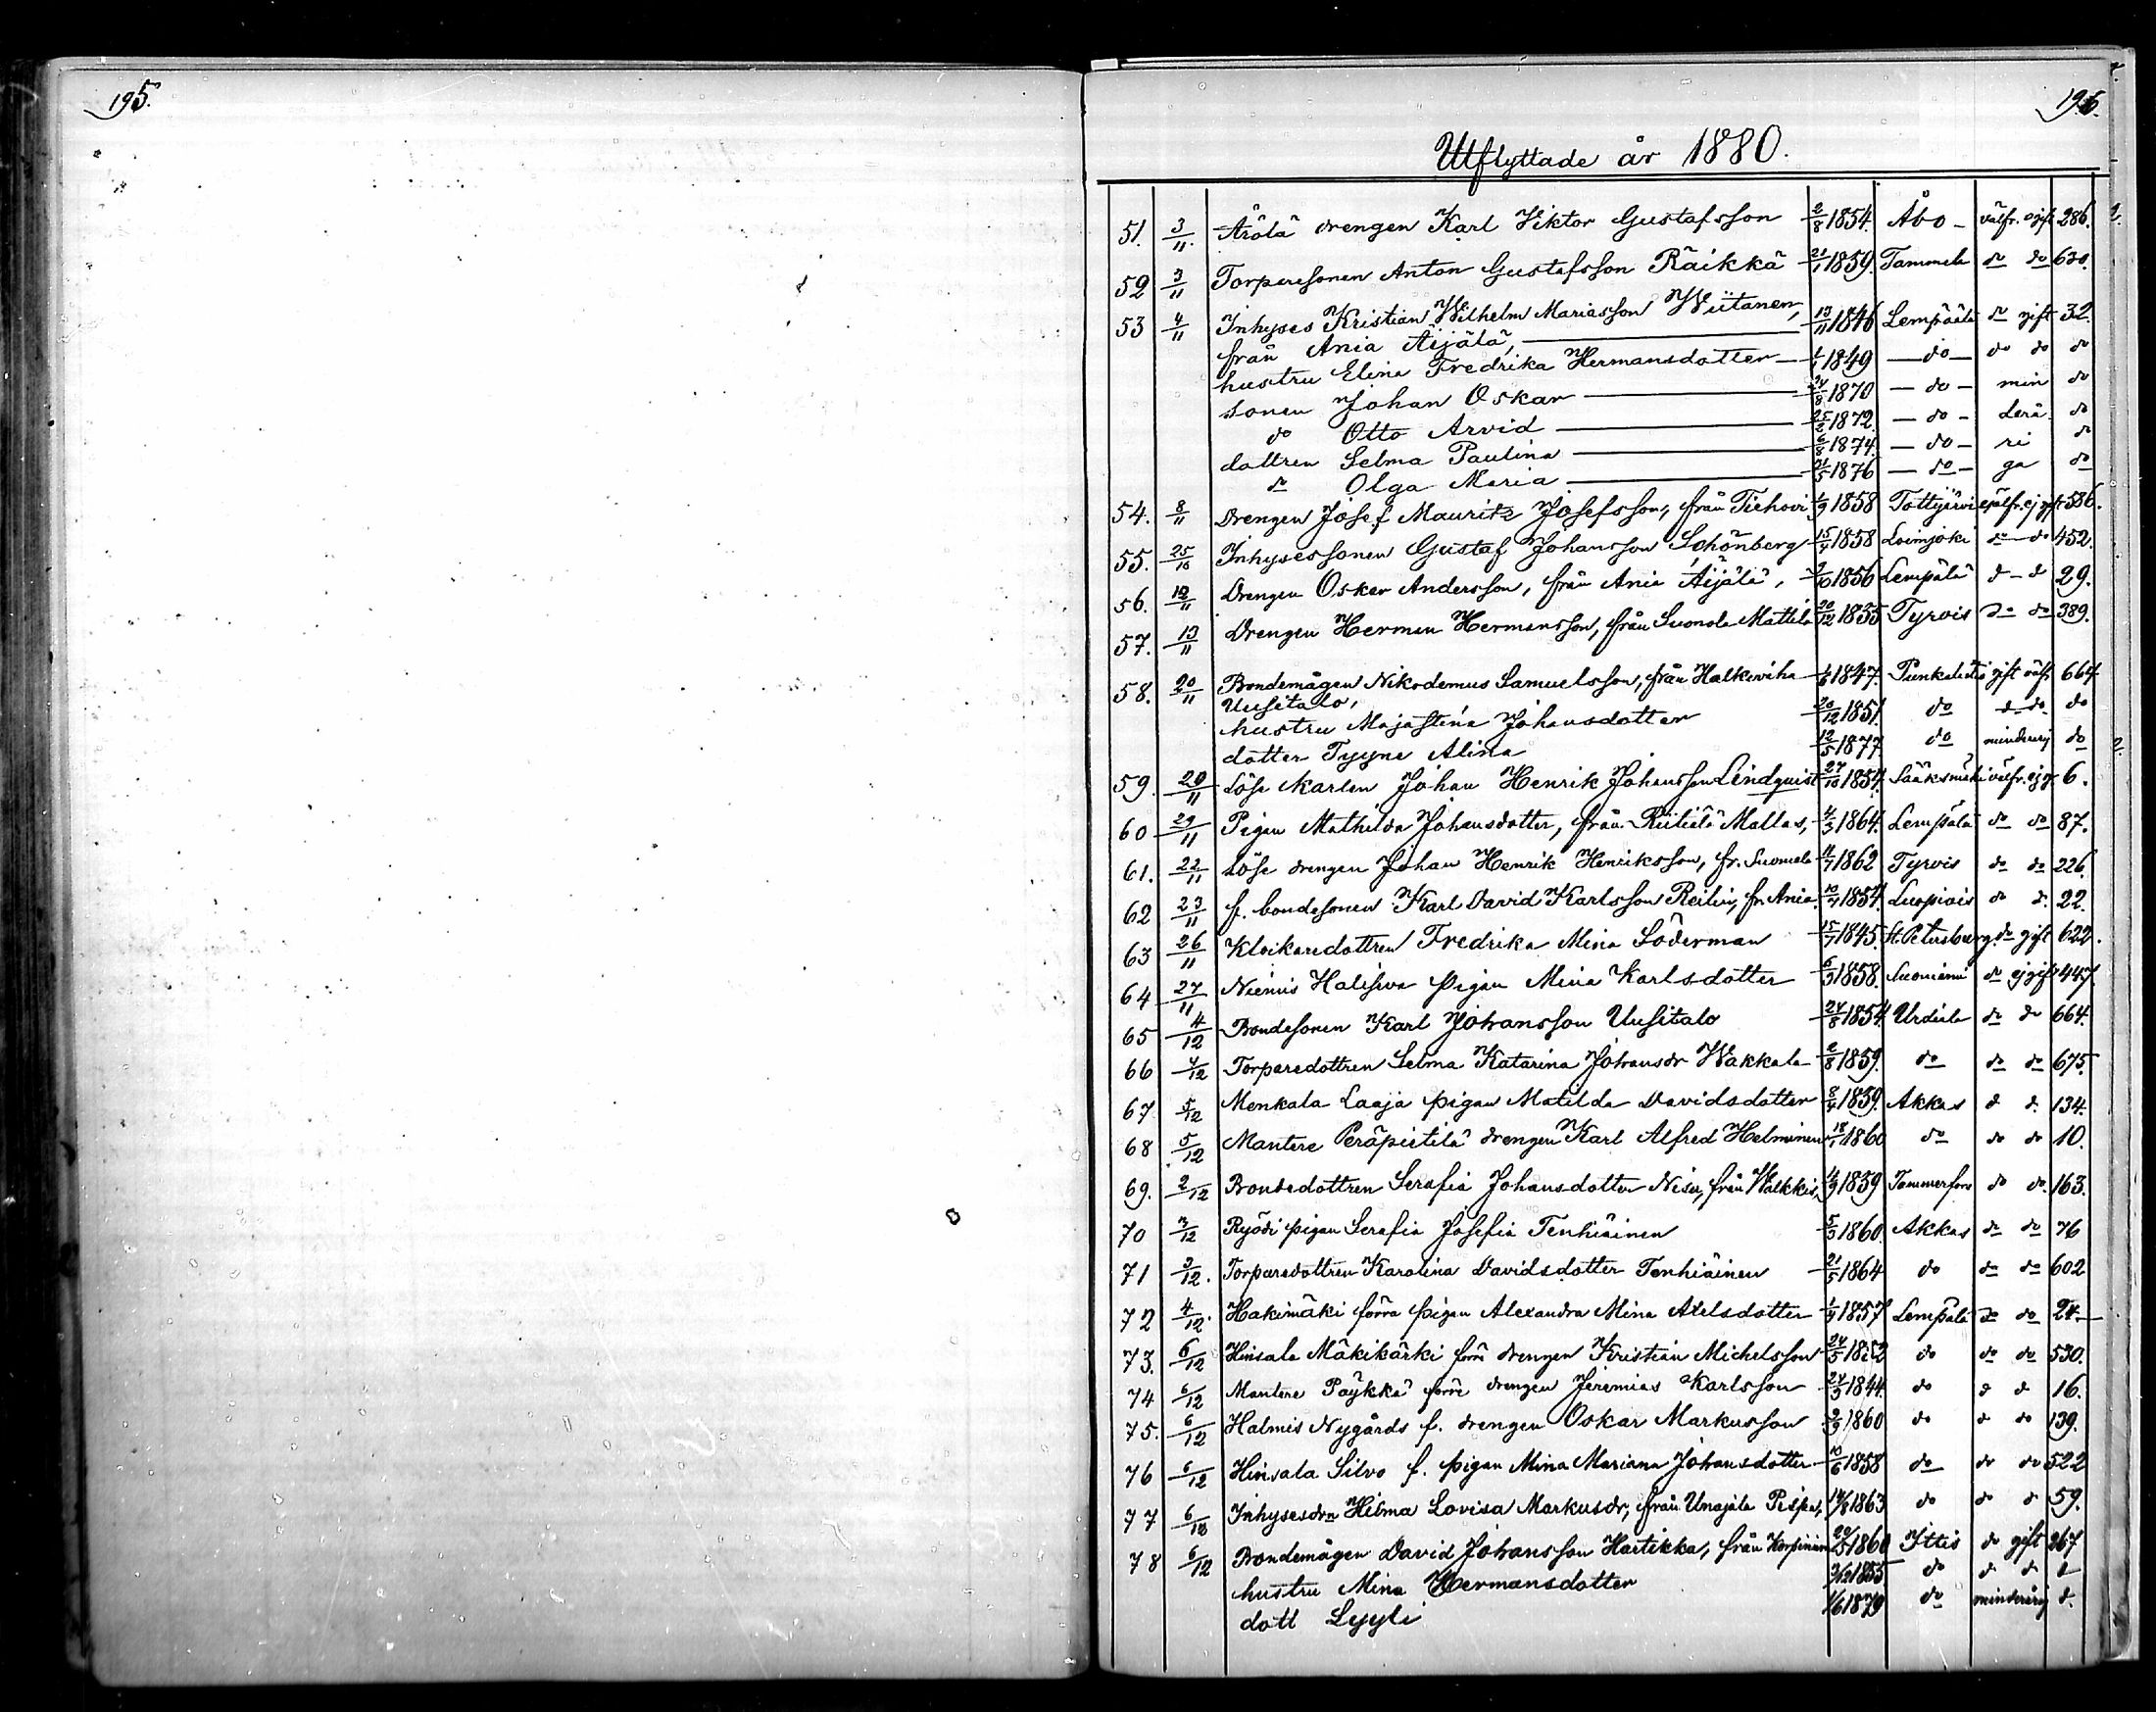 195.
196.
Utflyttade år 1880.
51. 3/11. Arölä drengen Karl Viktor Gustafsson 2/8 1854. Åbo - välfr. ogift 286.
52 3/11 Torparesonen Anton Gustafsson Räikkä 21/1 1859. Tammela do do 630.
53 4/11 Inhyses Kristian Wilhelm Mariasson Wiitanen,
från Ania Äijälä, 13/11 1846 Lempäälä do gift 32.
hustru Elina Fredrika Hermansdotter 1849 do do do do
sonen Johan Oskar 24/8 1870 do min do
do Otto Arvid 25/2 1872. do derå do
dottren Selma Paulina 6/8 1874. do ri do
do Olga Maria 21/5 1876 do ga do
54. 8/11 Drengen Josef Mauritz Josefsson, från Tiehovi 1/9 1858 Tottijärvi välfr. ej gift 586.
55. 25/10 Inhysessonen Gustaf Johansson Schönberg 15/4 1858 Loimjoki do do 452.
56. 12/11 Drengen Oskar Andersson, från Ania Äijälä, 1856 Lempälä d - d 29.
57. 13/11 Drengen Herman Hermansson, från Suonola Mattila 20/12 1855 Tyrvis do do 389.
58. 20/11 Bondemågen Nikodemus Samuelsson, från Halkivaha 1/6 1847. Punkalaitio gift välfr 664.
Uusitalo,
hustru Majastina Johansdotter 20/12 1851. do d do do
dotter Tyyne Alina 12/5 1877 do minderårig do
59. 20/11 Löse karlen Johan Henrik Johansson Lindquist 27/10 1854. Sääksmäki välfr. ej g. 6.
60 29/11 Pigan Mathilda Johansdotter, från Riitiälä Mallas, 4/3 1864. Lempälä do do 87.
61. 22/11 Löse drengen Johan Henrik Henriksson, fr. Suomela 11/7 1862 Tyrvis do do 226.
62 23/11 f. bondesonen Karl David Karlsson Reilin, fr. Ania. 10/7 1854. Luopiois do d. 22.
63 26/11 Klockaredottren Fredrika Mina Söderman 15/7 1845. St. Petersburg. do gift 622.
64 27/11 Niemis Halisiva pigan Mina Karlsdotter 6/3 1858. Suoniemi do ej gift 447.
65 4/12 Bondesonen Karl Johansson Uusitalo 24/8 1854. Urdiala do do 664.
66 4/12 Torparedottren Selma Katarina Johansdr Wakkala 2/8 1859. do do do 675.
67 5/12 Menkala Laaja pigan Matilda Davidsdotter 8/4 1859. Akkas d d. 134.
68 5/12 Mantere Peräpietilä drengen Karl Alfred Helminen 18/1 1860 do do do 10.
69. 2/12 Bondedottren Serafia Johansdotter Nisu, från Walkkis, 4/9 1859 Tammerfors do do. 163.
70 3/12 Ryödi pigan Serafia Josefia Tenhiäinen 5/3 1860. Akkas do do 76
71 3/12. Torparedottren Karolina Davidsdotter Tenhiäinen 21/5 1864 do do do 602
72 4/12. Hakimäki förra pigan Alexandra Mina Axelsdotter 1/4 1857 Lempälä do do 24.
73. 6/12 Hinsala Mäkikärki förre drengen Kristian Michelsson 24/5 1852 do do do 530.
74 6/12 Mantere Päykkä förre drengen Jeremias Karlsson 24/3 1844. do d d 16.
75. 6/12 Halmis Nygårds f. drengen Oskar Markusson 2/9 1860 do d do 139.
76 6/12 Hinsala Silvo f. pigan Mina Mariana Johansdotter 10/6 1858 do do do 522
77 6/12 Inhysesdrn Hilma Lovisa Markusdr, från Unajala Pispa, 14/8 1863 do do d 59.
78 6/12 Bondemågen David Johansson Hartikka, från Korpinien 20/5 1860 Ittis do gift 267
hustru Mina Hermansdotter 2/12 1855 do d d d
dott Lyyli 1/6 1879 do minderårig d.